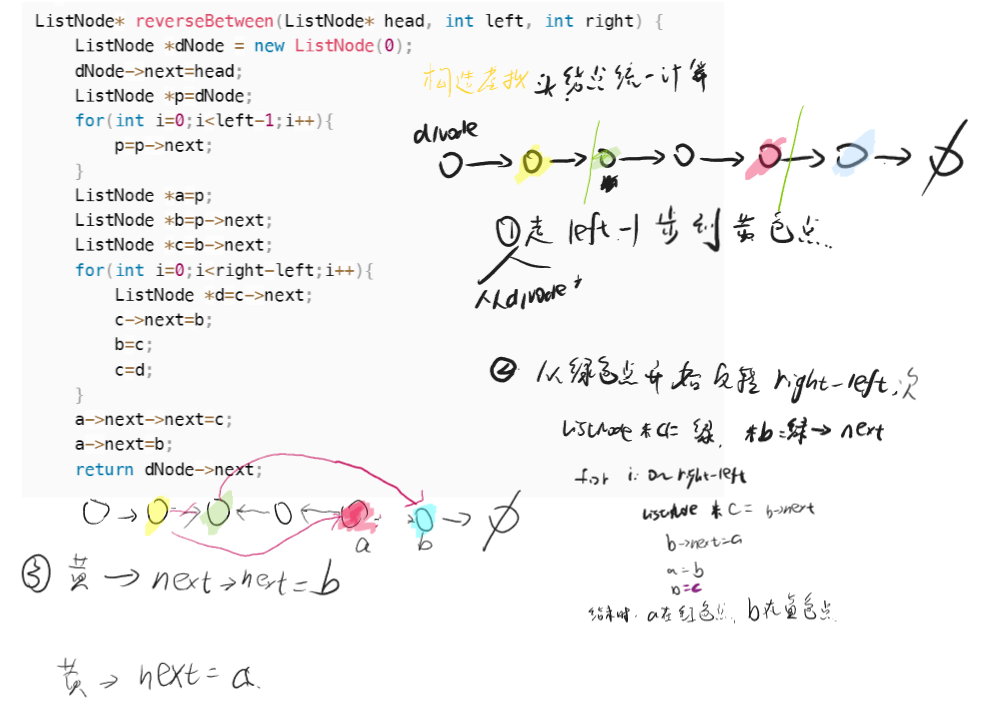 ListNode* reverseBetween(ListNode* head, int left, int right) {
ListNode *dNode = new ListNode(0);
dNode->next=head;
ListNode *p=dNode;
for(int i=0;i<left-1;i++){
p=p->next;
}
ListNode *a=p;
ListNode *b=p->next;
ListNode *c=b->next;
for(int i=0;i<right-left;i++){
ListNode *d=c->next;
c->next=b;
b=c;
c=d;
}
a->next->next=c;
a->next=b;
return dNode->next;
构造虚拟头结点统一计算
dNode
①走 left-1 步到黄色点
从dNode
② 从绿色点开始反转 right-left 次
ListNode *a= 绿, *b=绿→next
for i: 0~right-left
ListNode *c= b->next
b->next=a
a=b
b=c
结束时, a在红色点, b在蓝色点
a
b
③ 黄→next→next=b
黄→next=a.